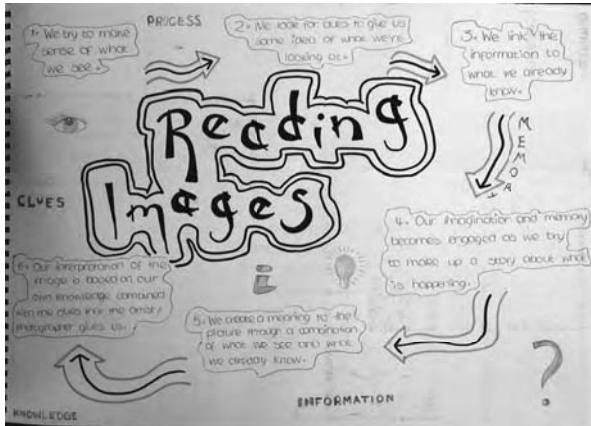 PROCESS
1. We try to make
sense of what
we see.
2. We look for clues to give us
some idea of what we're
looking at.
3. We link the
information to
what we already
know.
MEMORY
Reading
Images
CLUES
4. Our imagination and memory
becomes engaged as we try
to make up a story about what
is happening.
i
5. We create a meaning to the
picture through a combination
of what we see and what
we already know.
6. Our interpretation of the
image is based on our
own knowledge combined
with the clues that the artist/
photographer gives us.
?
INFORMATION
KNOWLEDGE